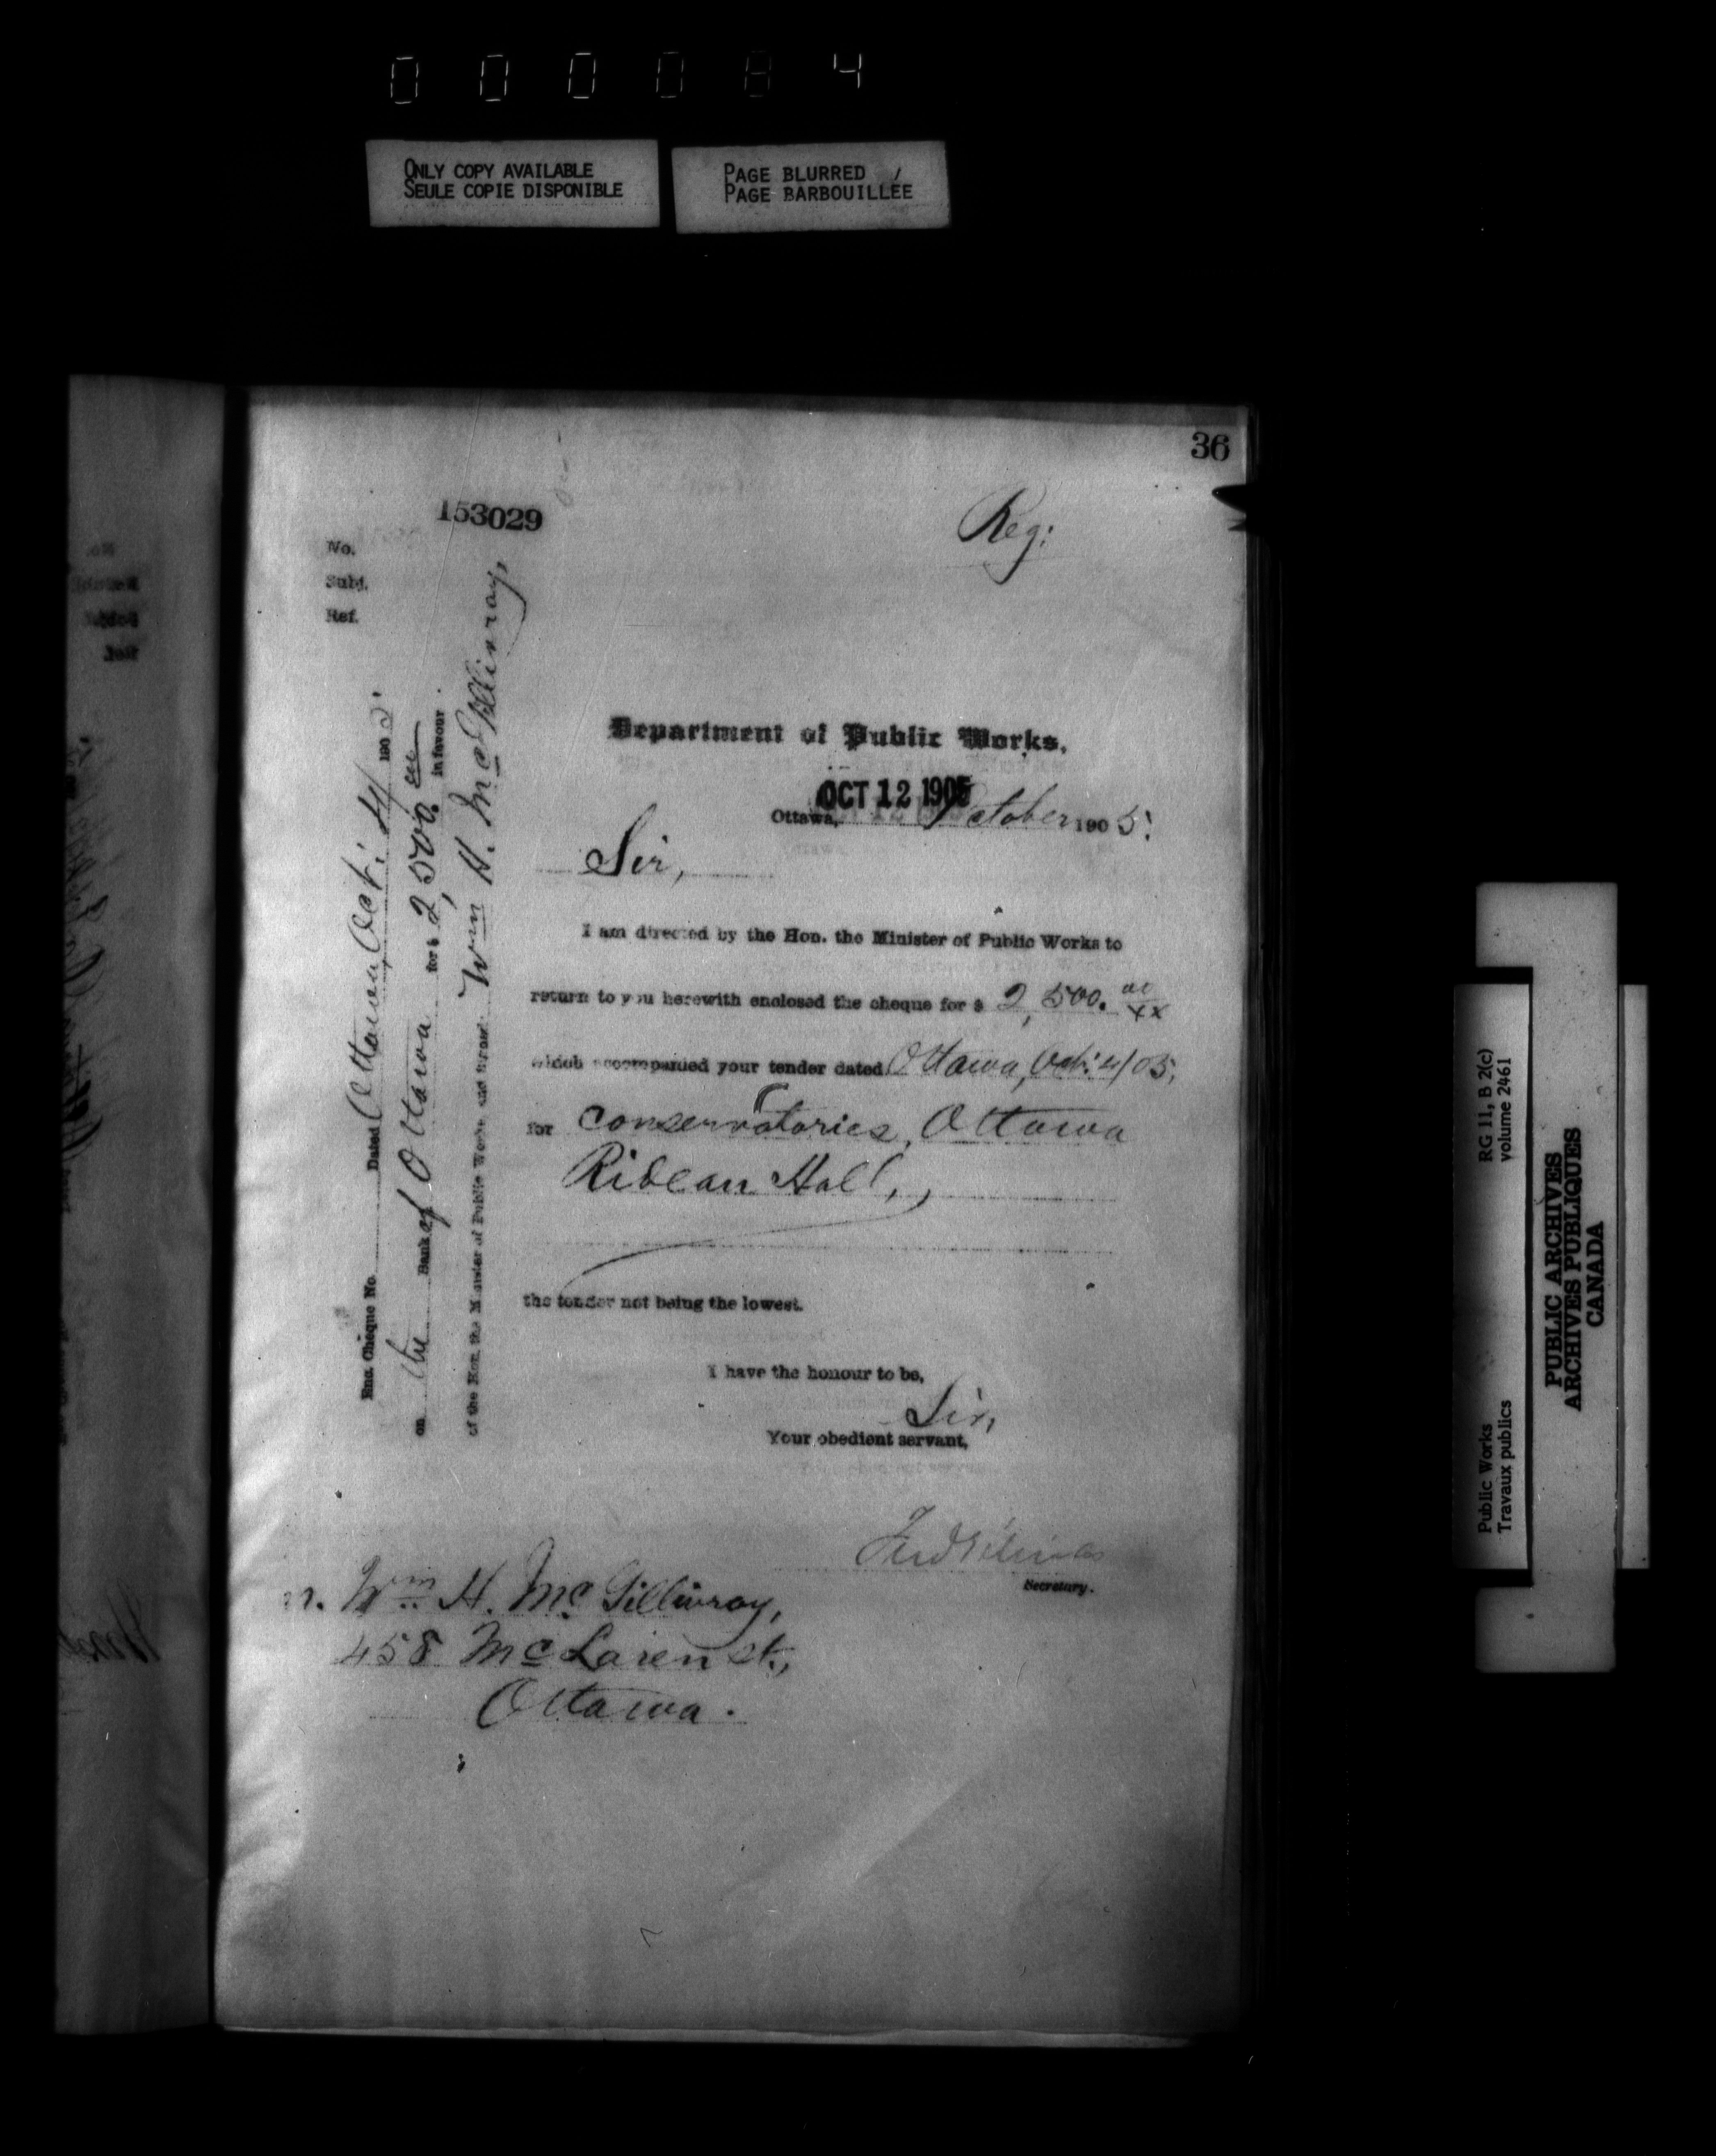 000084
ONLY COPY AVAILABLE
SEULE COPIE DISPONIBLE
PAGE BLURRED
PAGE BARBOUILLÉE
36
153029
Reg:
No.
Subj.
Ref.
Enc. Cheque No. Dated Ottawa, Oct: 4/ 1905.
on the Bank of Ottawa for $ 2,500. in favour
of the Hon. the Minister of Public Works and Wm H. McGillivray,
Department of Public Works.
OCT 12 1905
Ottawa, October 1905.
Sir,
I am directed by the Hon. the Minister of Public Works to
return to you herewith enclosed the cheque for $ 2,500. oo/xx
which accompanied your tender dated Ottawa, Oct: 4/05,
for conservatories, Ottawa
Rideau Hall,
the tender not being the lowest.
I have the honour to be,
Sir,
Your obedient servant,
Secretary.
Wm H. McGillivray,
458 McLaren st.,
Ottawa.
RG 11, B 2(c)
volume 2461
Public Works
Travaux publics
PUBLIC ARCHIVES
ARCHIVES PUBLIQUES
CANADA